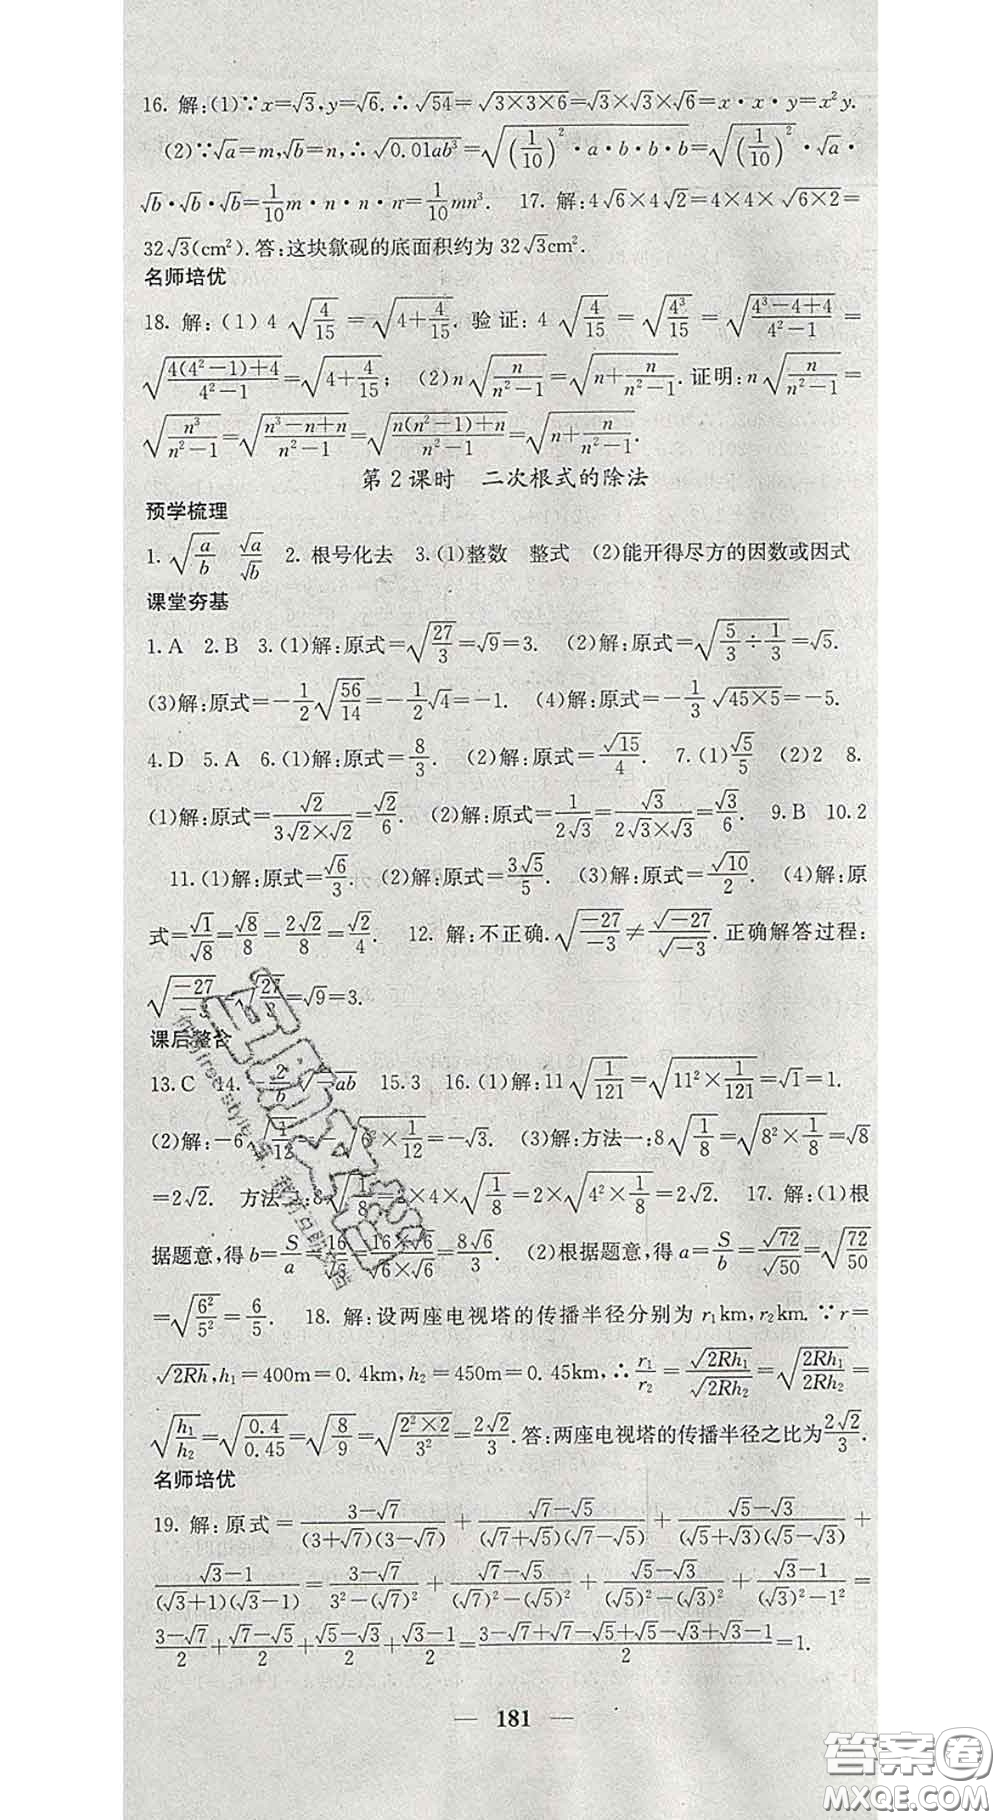 16. 解:(1)∵x=√3,y=√6.∴√54=√(3×3×6)=√3×√3×√6=x·x·y=x²y.
(2)∵√a=m,√b=n,∴√(0.01ab³)=√((1/10)²·a·b·b·b)=√((1/10)²)·√a·
√b·√b·√b=1/10 m·n·n·n=1/10 mn³. 17. 解:4√6×4√2=4×4×√(6×2)=
32√3(cm²).答:这块歙砚的底面积约为32√3cm².
名师培优
18. 解:(1)4√(4/15)=√(4+4/15).验证:4√(4/15)=√(4³/15)=√((4³-4+4)/(4²-1))=
√((4(4²-1)+4)/(4²-1))=√(4+4/15); (2)n√(n/(n²-1))=√(n+n/(n²-1)).证明:n√(n/(n²-1))=
√(n³/(n²-1))=√((n³-n+n)/(n²-1))=√((n(n²-1)+n)/(n²-1))=√(n+n/(n²-1)).
第2课时 二次根式的除法
预学梳理
1. √(a/b) √a/√b 2. 根号化去 3.(1)整数 整式 (2)能开得尽方的因数或因式
课堂夯基
1. A 2. B 3.(1)解:原式=√(27/3)=√9=3. (2)解:原式=√(5/3÷1/3)=√5.
(3)解:原式=-1/2√(56/14)=-1/2√4=-1. (4)解:原式=-1/3√(45×5)=-5.
4. D 5. A 6.(1)解:原式=8/3. (2)解:原式=√15/4. 7.(1)√5/5 (2)2 8.
(1)解:原式=√2/(3√2×√2)=√2/6. (2)解:原式=1/(2√3)=√3/(2√3×√3)=√3/6. 9. B 10. 2
11.(1)解:原式=√6/3. (2)解:原式=3√5/5. (3)解:原式=√10/2. (4)解:原
式=√1/√8=√8/8=2√2/8=√2/4. 12. 解:不正确.√(-27/-3)≠√-27/√-3.正确解答过程:
√(-27/-3)=√(27/3)=√9=3.
课后整合
13. C 14. ab 15. 3 16.(1)解:11√(1/121)=√(11²×1/121)=√1=1.
(2)解:-6√(1/12)=-√(6²×1/12)=-√3. (3)解:方法一:8√(1/8)=√(8²×1/8)=√8
=2√2. 方法二:8√(1/8)=2×4×√(1/8)=2×√(4²×1/8)=2√2. 17. 解:(1)根
据题意,得b=S/a=16/√6=(16×√6)/(√6×√6)=8√6/3. (2)根据题意,得a=S/b=√72/√50=√(72/50)
=√(6²/5²)=6/5. 18. 解:设两座电视塔的传播半径分别为r₁km,r₂km.∵r=
√(2Rh),h₁=400m=0.4km,h₂=450m=0.45km,∴r₁/r₂=√(2Rh₁)/√(2Rh₂)=√(2Rh₁/2Rh₂)=
√(h₁/h₂)=√(0.4/0.45)=√(8/9)=√((2²×2)/3²)=2√2/3.答:两座电视塔的传播半径之比为2√2/3.
名师培优
19. 解:原式=(3-√7)/((3+√7)(3-√7))+(√7-√5)/((√7+√5)(√7-√5))+(√5-√3)/((√5+√3)(√5-√3))+
(√3-1)/((√3+1)(√3-1))=(3-√7)/(3²-(√7)²)+(√7-√5)/((√7)²-(√5)²)+(√5-√3)/((√5)²-(√3)²)+(√3-1)/((√3)²-1²)=
(3-√7)/2+(√7-√5)/2+(√5-√3)/2+(√3-1)/2=(3-√7+√7-√5+√5-√3+√3-1)/2=1.
— 181 —
答案圈
MXQE.COM